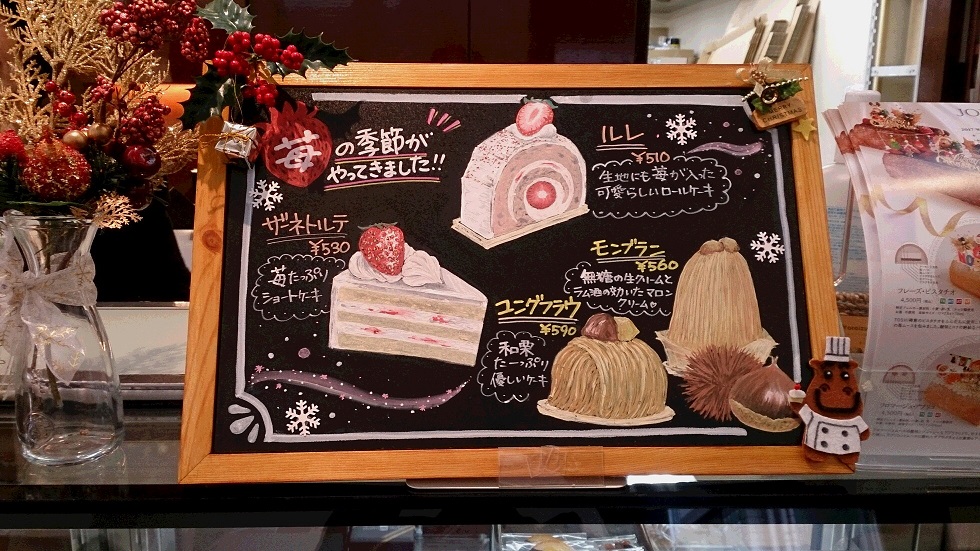 苺の季節が
やってきました!!
ルレ
¥510
生地にも苺が入った
可愛らしいロールケーキ
ザーネトルテ
¥530
苺たっぷり
ショートケーキ
モンブラン
¥560
無糖の生クリームと
ラム酒の効いたマロン
クリーム
ユングフラウ
¥590
和栗
たーっぷり
優しいケーキ
フレーズ・ピスタチオ
4,500円